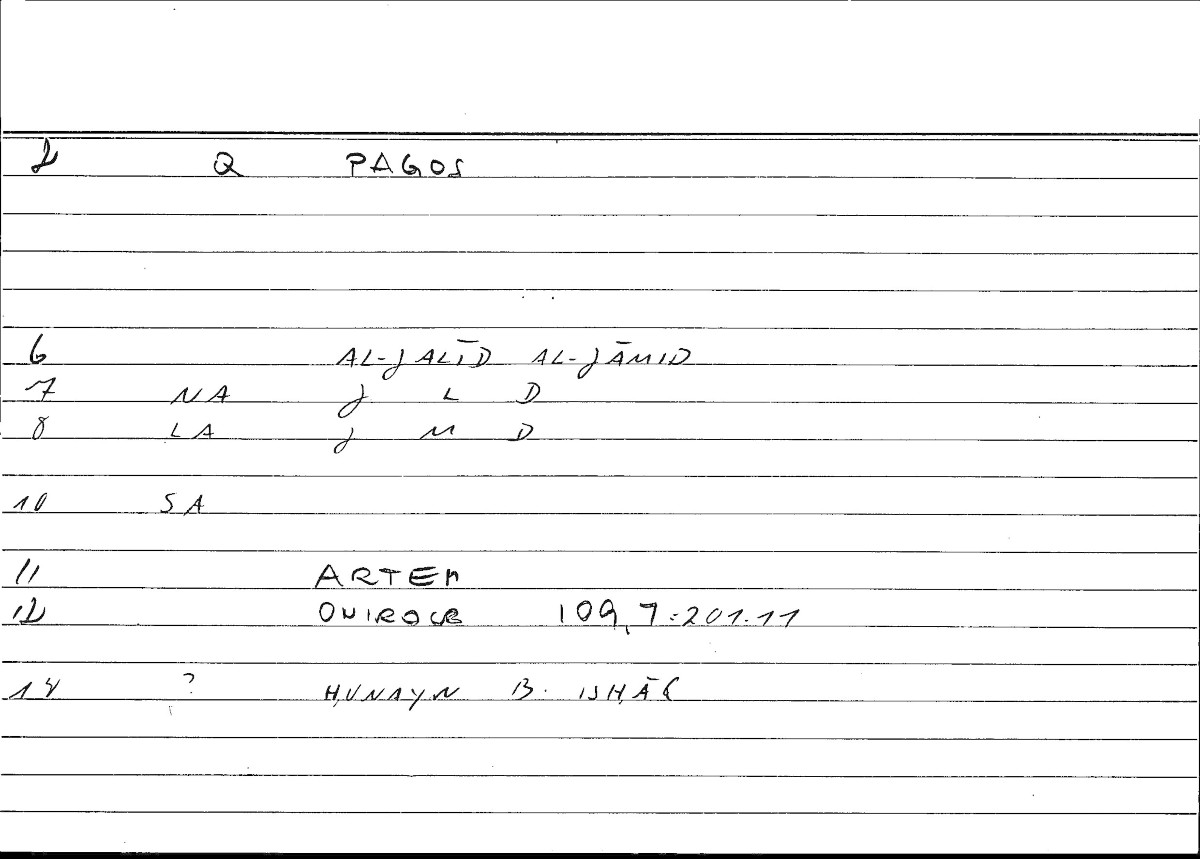 2 Q PAGOS
6 AL-JALĪD AL-JĀMID
7 NA J L D
8 LA J M D
10 SA
11 ARTEM
12 ONIROCR 109,7=201.11
14 ? ḤUNAYN B. ISḤĀḲ